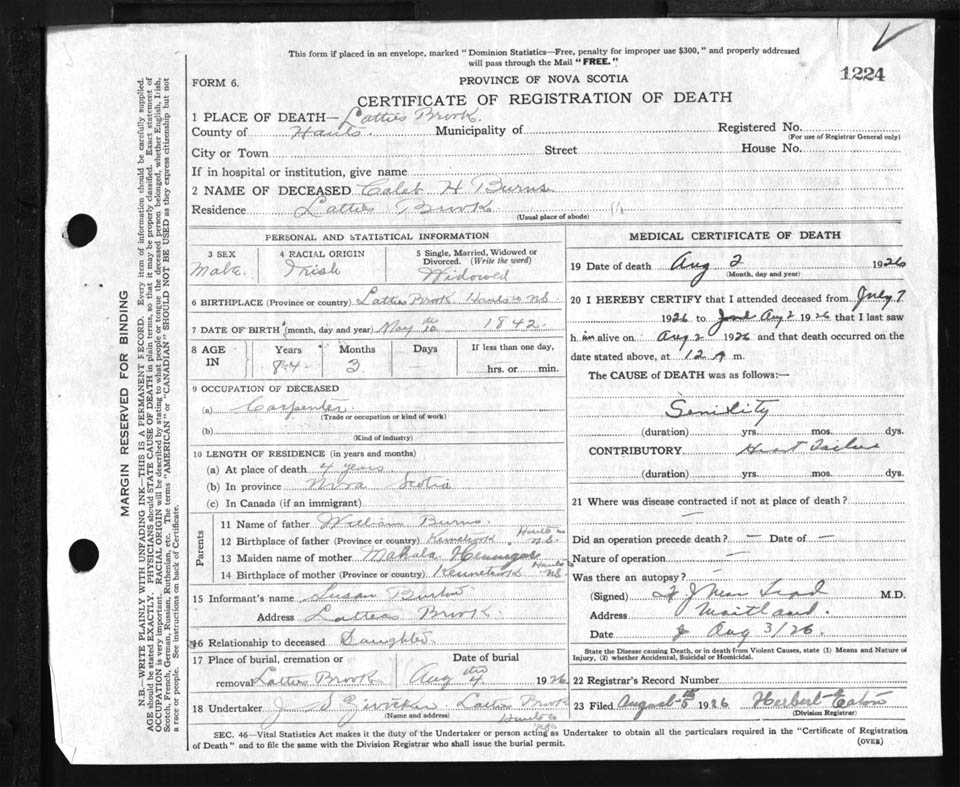 This form if placed in an envelope, marked "Dominion Statistics—Free, penalty for improper use $300," and properly addressed
will pass through the Mail "FREE."
1224
FORM 6.
PROVINCE OF NOVA SCOTIA
CERTIFICATE OF REGISTRATION OF DEATH
1 PLACE OF DEATH— Latties Brook.
County of Hants. Municipality of Registered No.
(For use of Registrar General only)
City or Town Street House No.
If in hospital or institution, give name
2 NAME OF DECEASED Caleb H Burns
Residence Latties Brook
(Usual place of abode)
PERSONAL AND STATISTICAL INFORMATION
3 SEX 4 RACIAL ORIGIN 5 Single, Married, Widowed or
Divorced. (Write the word)
Male. Irish Widowed
6 BIRTHPLACE (Province or country) Latties Brook Hants Co NS.
7 DATE OF BIRTH (month, day and year) May 10th 1842.
8 AGE IN Years Months Days If less than one day,
84 3 — hrs. or min.
9 OCCUPATION OF DECEASED
(a) Carpenter.
(Trade or occupation or kind of work)
(b)
(Kind of industry)
10 LENGTH OF RESIDENCE (in years and months)
(a) At place of death 4 years
(b) In province Nova Scotia
(c) In Canada (if an immigrant)
Parents
11 Name of father William Burns.
12 Birthplace of father (Province or country) Hants Co NS.
13 Maiden name of mother Mahala
14 Birthplace of mother (Province or country) Hants Co NS
15 Informant's name Susan
Address Latties Brook.
16 Relationship to deceased Daughter.
17 Place of burial, cremation or Date of burial
removal Latties Brook Aug 4th 1926
18 Undertaker J Latties Brook
(Name and address) Hants Co
MEDICAL CERTIFICATE OF DEATH
19 Date of death Aug 2 1926
(Month, day and year)
20 I HEREBY CERTIFY that I attended deceased from July 7
1926 to Aug 2 1926 that I last saw
him alive on Aug 2 1926 and that death occurred on the
date stated above, at 12 A m.
The CAUSE of DEATH was as follows:—
Senility
(duration) yrs. mos. dys.
CONTRIBUTORY Heart Failure
(duration) yrs. mos. dys.
21 Where was disease contracted if not at place of death?
—
Did an operation precede death? — Date of —
Nature of operation —
Was there an autopsy? —
(Signed) M.D.
Address Maitland.
Date Aug 3/26.
State the Disease causing Death, or in death from Violent Causes, state (1) Means and Nature of
Injury, (2) whether Accidental, Suicidal or Homicidal.
22 Registrar's Record Number
23 Filed August 5th 1926 Herbert Eaton
(Division Registrar)
SEC. 46—Vital Statistics Act makes it the duty of the Undertaker or person acting as Undertaker to obtain all the particulars required in the "Certificate of Registration
of Death" and to file the same with the Division Registrar who shall issue the burial permit.
(OVER)
MARGIN RESERVED FOR BINDING
N.B.—WRITE PLAINLY WITH UNFADING INK—THIS IS A PERMANENT RECORD. Every item of information should be carefully supplied.
AGE should be stated EXACTLY. PHYSICIANS should STATE CAUSE OF DEATH in plain terms, so that it may be properly classified. Exact statement of
OCCUPATION is very important. RACIAL ORIGIN will be described by stating to what people or tongue the deceased person belonged, whether English, Irish,
Scotch, French, German, Russian, Ruthenian, etc. The terms "AMERICAN" or "CANADIAN" SHOULD NOT BE USED as they express citizenship but not
a race or people. See instructions on back of Certificate.